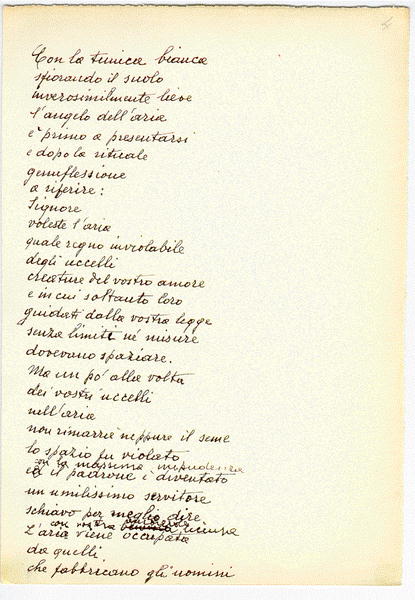 4
Con la tunica bianca
sfiorando il suolo
inverosimilmente lieve
l'angelo dell'aria
è primo a presentarsi
e dopo la rituale
genuflessione
a riferire:
Signore
voleste l'aria
quale regno inviolabile
degli uccelli
creature del vostro amore
e in cui soltanto loro
guidati dalla vostra legge
senza limiti né misure
dovevano spaziare.
Ma un po' alla volta
dei vostri uccelli
nell'aria
non rimarrà neppure il seme
lo spazio fu violato
con la massima impudenza
ed il padrone è diventato
un umilissimo servitore
schiavo per meglio dire
con vostra licenza
L'aria viene occupata
da quelli
che fabbricano gli uomini